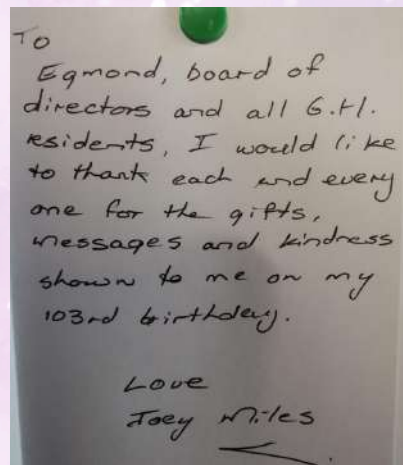 To
Egmond, board of
directors and all G.H.
residents, I would like
to thank each and every
one for the gifts,
messages and kindness
shown to me on my
103rd birthday.
Love
Joey Miles